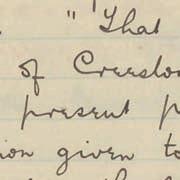 " That
of Creesto
present p
ion given to